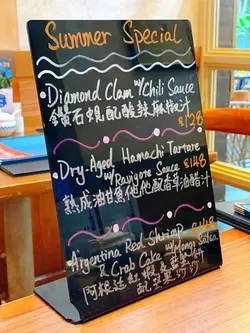 Summer Special
Diamond Clam w/Chili Sauce
鑽石蜆配酸辣麻椒汁 $128
Dry-Aged Hamachi Tartare
w/Ravigore Sauce $148
熟成油甘魚他他配香草油醋汁
Argentina Red Shrimp $148
& Crab Cake w/Mango Salsa
阿根廷紅蝦